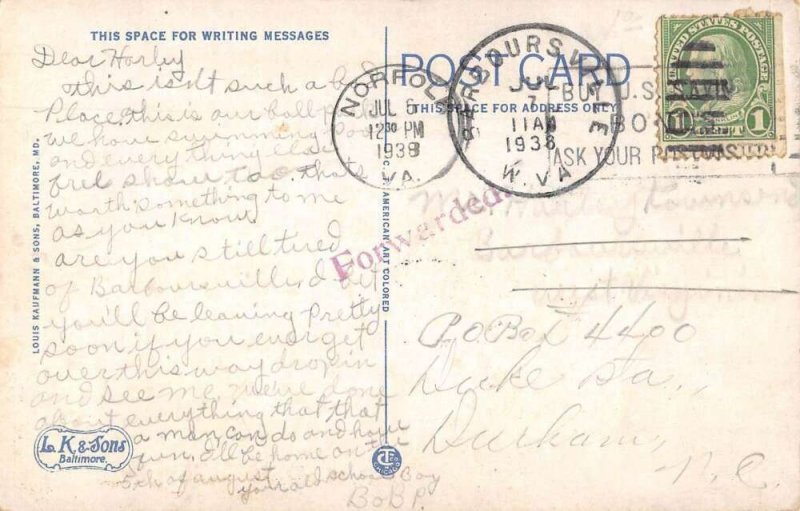 THIS SPACE FOR WRITING MESSAGES
Dear Harley
this isn't such a bad
Place this is our ball park
we have swimming Pool
and everything else
free show too. thats
worth something to me
as you know
are you still tired
of Barboursville, I bet
you'll be leaving Pretty
soon if you ever get
over this way drop in
and see me we've done
about everything that that
a man can do and have
fun, I'll be home on the
5th of august
your old school Boy
BoB P.
LOUIS KAUFMANN & SONS, BALTIMORE, MD.
L. K. & Sons
Baltimore.
AMERICAN ART COLORED
POST CARD
THIS SPACE FOR ADDRESS ONLY
NORFOLK
JUL 6
12 30 PM
1938
VA.
BARBOURSVILLE
JUL
7
11 AM
1938
W. VA
BUY U.S. SAVINGS
BONDS
ASK YOUR POSTMASTER
UNITED STATES POSTAGE
1 1
Forwarded
Mr. Harley Townsend
Barboursville
West Virginia
P.O. Box 4400
Duke Sta.,
Durham,
N.C.
CHICAGO